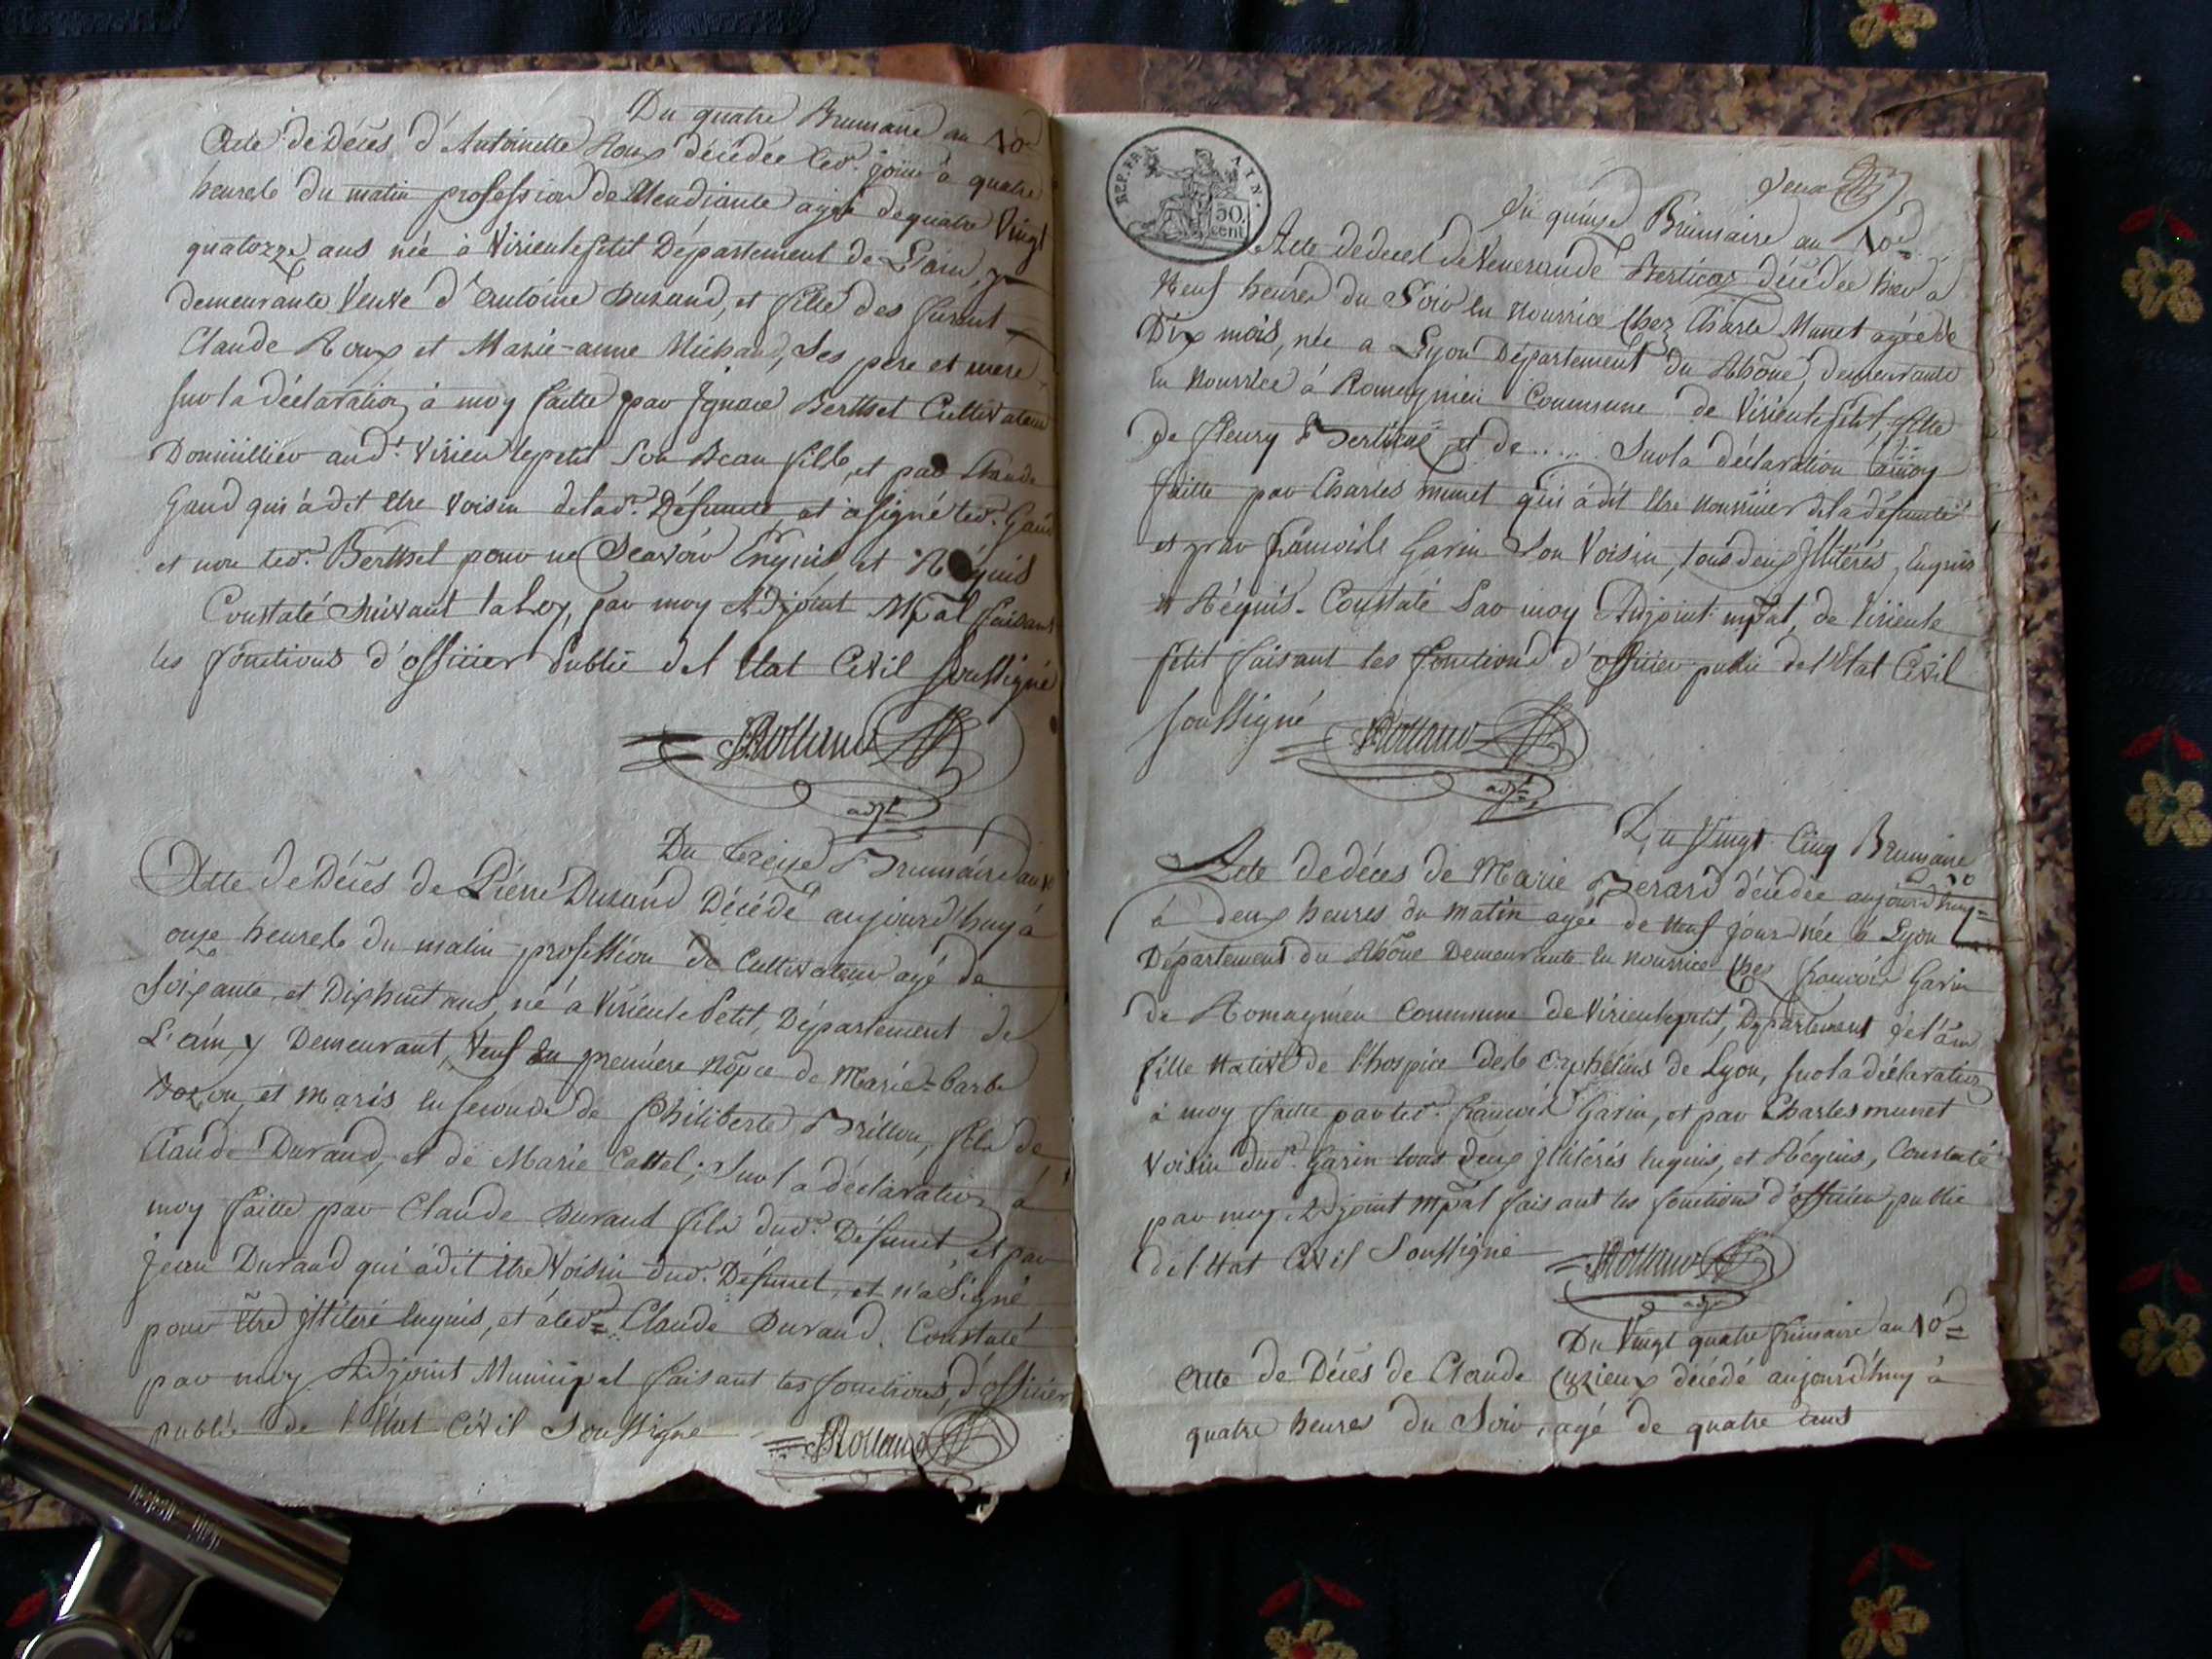 Du quatre Brumaire an 10e
Acte de Décès d'Antoinette Roux décédée led. jour à quatre
heures du matin profession de Mendiante agée de quatre Vingt
quatorze ans née à Virieu le petit Département de L'ain, y
demeurante Veuve d'Antoine Durand, et fille des furent
Claude Roux et Marie-anne Michaud, Ses pere et mere
Sur la déclaration à moy faitte par Ignace Berthet Cultivateur
Domicillier aud. Virieu lepetit Son Beau fille, et par Claude
Gaud qui à dit Etre Voisin delad. Défunte et a signé led. Gaud
et non led. Berthet pour ne Scavoir Enquis et Réquis
Constaté Suivant la Loy, par moy Adjoint Mpal faisant
les fonctions d'officier Public del Etat Civil soussigné
JRolland
adjt
Du treize Brumaire an 10
Acte de Décès de Pierre Durand Décédé aujourd'huy à
onze heures du matin profession de Cultivateur agé de
Soixante et Dixhuit ans, né à Virieu le Petit, Département de
L'ain, y Demeurant, Veuf en premiere Nopce de Marie-Barbe
et maris en seconde de Philiberte Brillon, fils de
Claude Durand, et de Marie Cattel; Sur la déclaration à
moy faitte par Claude Durand fils dud. Défunct, et par
Jean Durand qui à dit être Voisin dud. Défunct, et n'a Signé
pour Etre Illiteré Enquis, et à led. Claude Durand. Constaté
par moy Adjoint Municipal faisant les fonctions, d'officier
public de l'Etat Civil Soussigné
JRolland
REP. FRA
50.
cent
deux
Du quinze Brumaire an 10e
Acte de decès de Venerande Berticoz décédée hier à
Neuf heures du Soir en Nourrice Chez Charle Munet agée de
Dix mois, née a Lyon Département du Rhône, demeurante
en Nourrice à Romagnieu Commune de Virieu le petit, fille
de fleury et de..... Sur la déclaration à moy
faitte par Charles Munet qui à dit Etre Nourricier de la défunte
et par francois Garin Son Voisin, tous deux Illitérés, Enquis
et Réquis. Constaté Par moy Adjoint mpal, de Virieu le
Petit faisant les fonctions d'officier public de l'Etat Civil
soussigné JRolland
adjt
Du Vingt Cinq Brumaire
an 10
Acte de déces de Marie Berard décédée aujourd'huy
à deux heures du matin agée de Neuf jours née à Lyon
Département du Rhône Demeurante en nourrice Chez francois Garin
de Romagnieu Commune de Virieu lepetit, Département de l'ain
fille Native de l'hospice des Orphelins de Lyon, sur la déclaration
à moy faitte par led. francois Garin, et par Charles munet
Voisin dud. Garin tous deux Illitérés Enquis, et Réquis, Constaté
par moy Adjoint Mpal faisant les fonctions d'officier public
de l'Etat Civil Soussigné JRolland
adjt
Du Vingt quatre frimaire an 10e
Acte de Décès de Claude Cuzieux décédé aujourd'huy à
quatre heures du Soir, agé de quatre ans